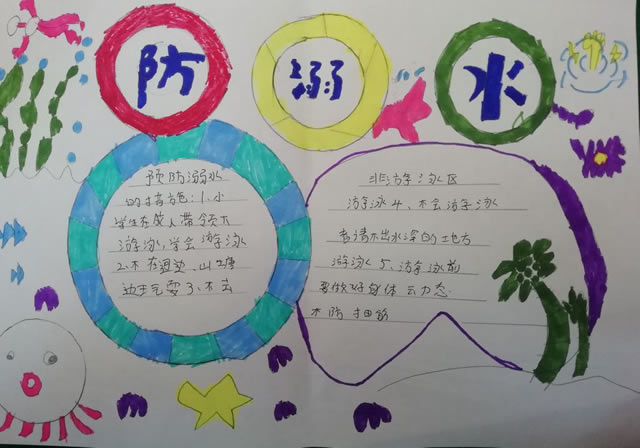 防 溺 水
预防溺水
的措施:1、小
学生在家人带领下
游泳,学会游泳
2、不在河边、山塘
边 3、不去
非游泳区
游泳 4、不会游泳
者请不出水深的地方
游泳 5、游泳前
要做好身体 云力态
不防 抽筋